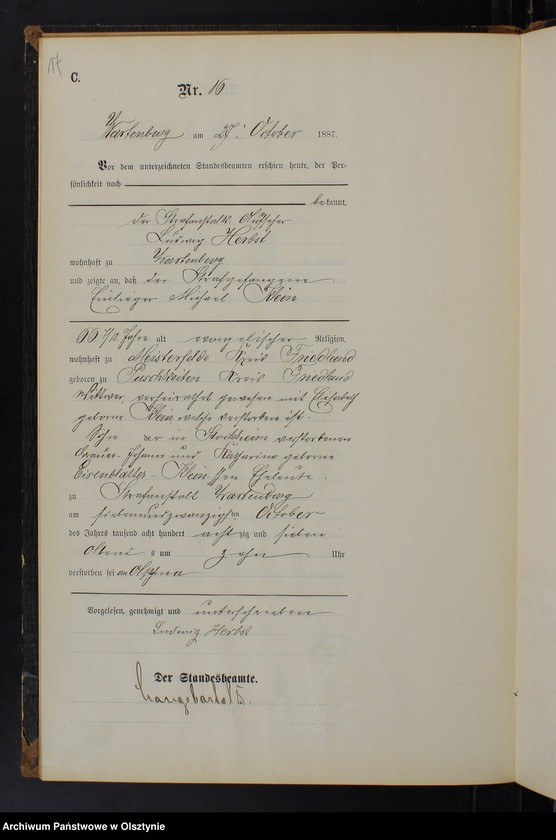 17
C.
Nr. 16
Wartenburg am 27. October 1887.
Vor dem unterzeichneten Standesbeamten erschien heute, der Per-
sönlichkeit nach
be kannt,
der Strafanstalts
Ludwig Herbst
wohnhaft zu Wartenburg
und zeigte an, daß der Strafgefangene
Einlieger Michael Klein
66 7/12 Jahre alt evangelischer Religion,
wohnhaft zu Meisterfelde Kreis Friedland
geboren zu Puschkeiten Kreis Friedland
Wittwer, verheirathet gewesen mit Elisabeth
geborne Klein, welche verstorben ist.
Sohn der in Stockheim verstorbenen
Johann und Katharina geborne
Eisenblätter - Klein'schen Eheleute.
zu Strafanstalt Wartenburg
am siebenundzwanzigsten October
des Jahres tausend acht hundert acht zig und sieben
um zehn Uhr
verstorben sei an
Vorgelesen, genehmigt und unterschrieben
Ludwig Herbst
Der Standesbeamte.
Archiwum Państwowe w Olsztynie